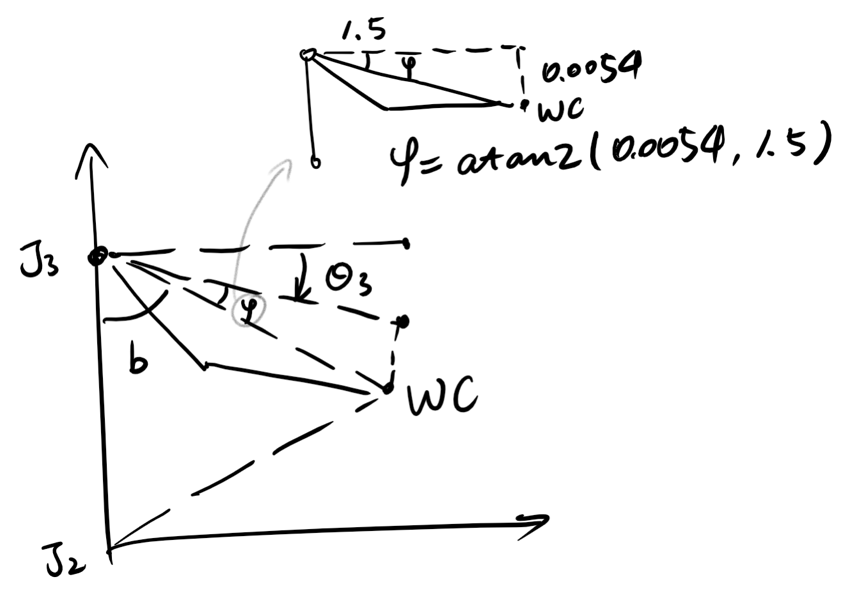 1.5
φ
0.0054
WC
φ= atan2(0.0054, 1.5)
J3
θ3
φ
b
WC
J2